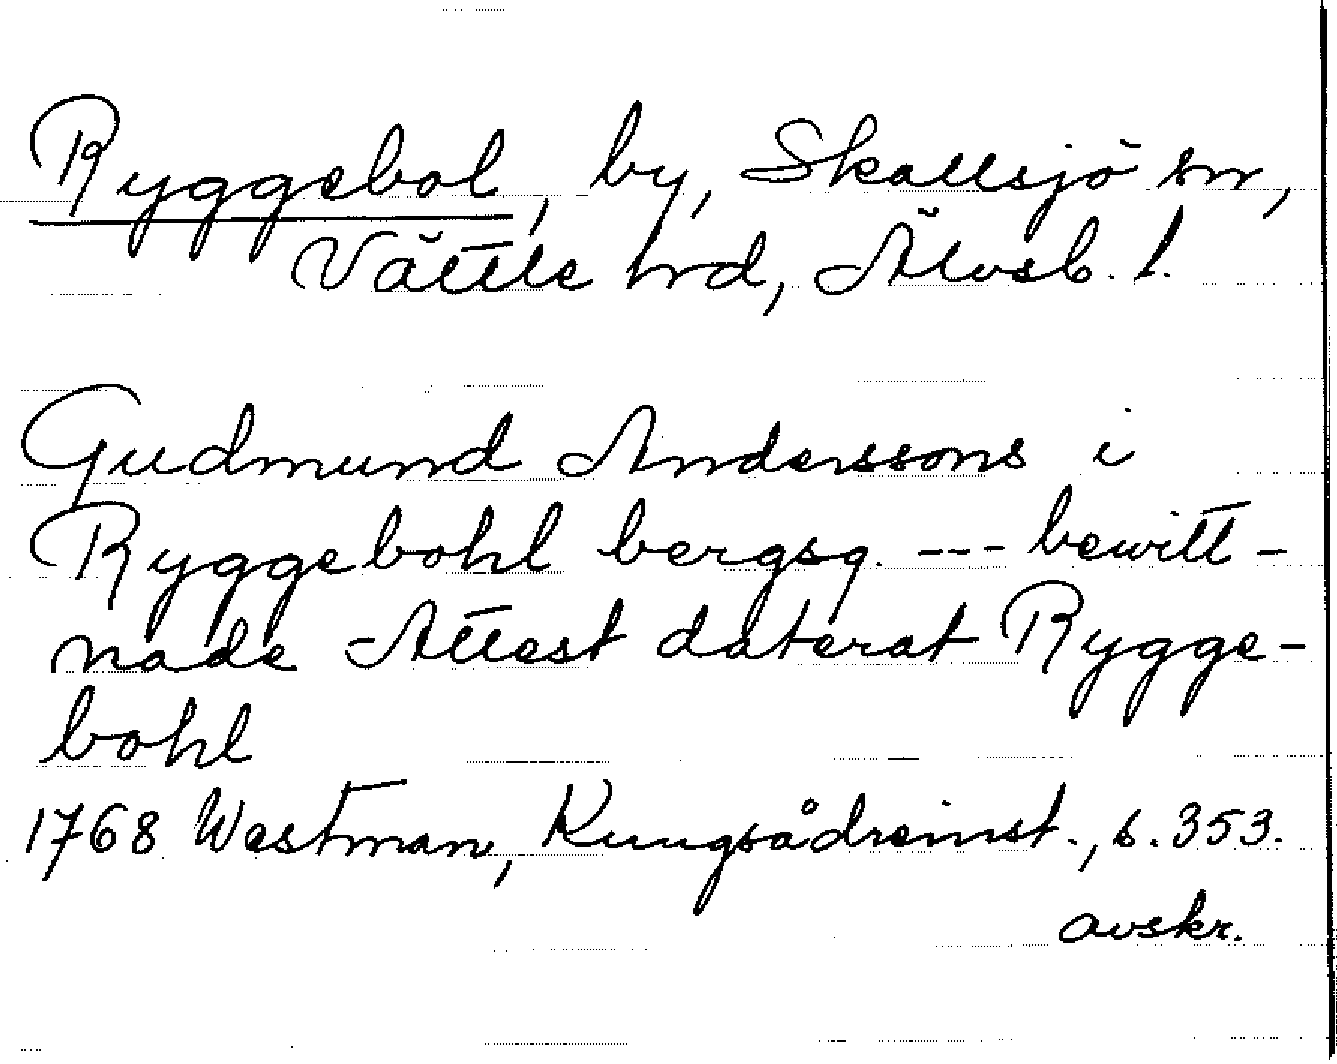 Ryggebol, by, Skallsjö sn,
Vättle hd, Älvsb. l.
Gudmund Anderssons i
Ryggebohl bergsg. --- bewitt-
nade Attest daterat Rygge-
bohl
1768 Westman, Kungsådreinst., s. 353.
avskr.